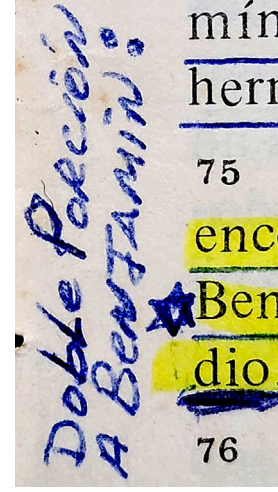 Doble Porción
A BENJAMIN:
mín
hern
75
enc
Ben
dio
76